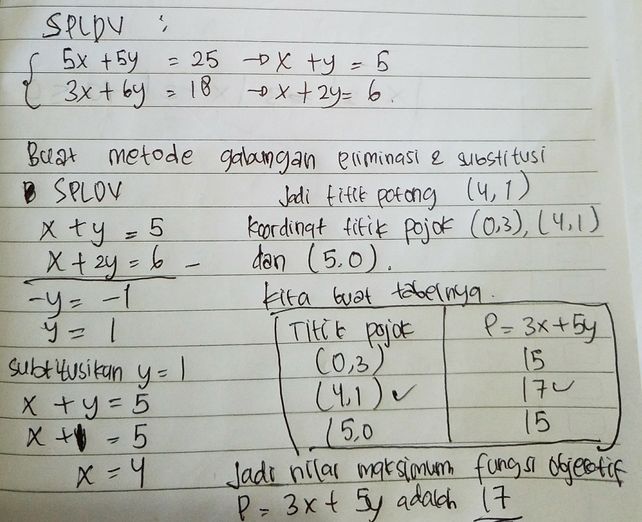 SPLDV :
5x + 5y = 25 → x + y = 5
3x + 6y = 18 → x + 2y = 6.
Buat metode gabungan eliminasi & substitusi
SPLDV
x + y = 5
x + 2y = 6 -
-y = -1
y = 1
substitusikan y = 1
x + y = 5
x + 1 = 5
x = 4
Jadi titik potong (4,1)
koordinat titik pojok (0,3), (4,1)
dan (5,0).
kita buat tabelnya.
Titik pojok P = 3x + 5y
(0,3) 15
(4,1) ✓ 17 ✓
(5,0 15
Jadi nilai maksimum fungsi objektif
P = 3x + 5y adalah 17